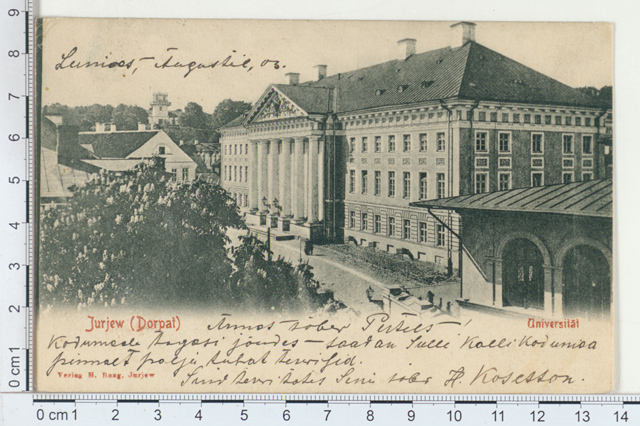 Augustil, 03.
Jurjew (Dorpat)
Universität
Armas sõber Peeter!
Kodumaale tagasi jõudes – saadan Sulle Kalli Kodumaa
pinnalt palju tuhat tervisid.
Sind tervitates Sinu sõber H.
Verlag H. Jurjew
0 cm 1 2 3 4 5 6 7 8 9
0 cm 1 2 3 4 5 6 7 8 9 10 11 12 13 14